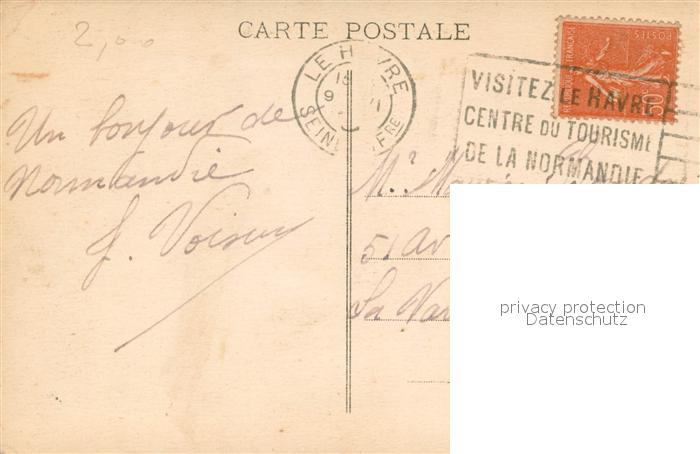 2,00
CARTE POSTALE
LE HAVRE
SEINE
VISITEZ LE HAVRE
CENTRE DU TOURISME
DE LA NORMANDIE
POSTES
Un bonjour de
Normandie
J. Voisin
Mr
51 Av
La Var
privacy protection
Datenschutz